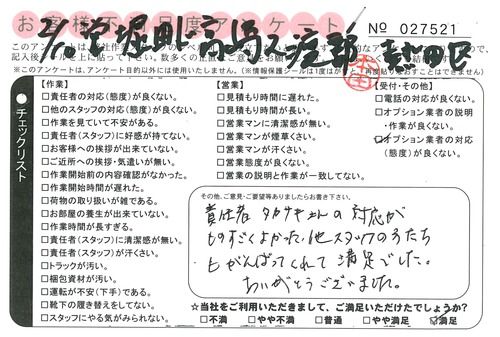 お客様不満足度アンケート
№ 027521
※このアンケートは、アンケート目的以外には一切使いたしません。
チェックリスト
【作業】
□責任者の対応(態度)が良くない。
□他のスタッフの対応(態度)が良くない。
□作業を見ていて不安がある。
□責任者(スタッフ)に好感が持てない。
□お客様への挨拶が出来ていない。
□ご近所への挨拶・気遣いが無い。
□作業開始前の内容確認がなかった。
□作業開始時間が遅れた。
□荷物の取り扱いが雑である。
□お部屋の養生が出来ていない。
□作業時間が長すぎる。
□責任者(スタッフ)に清潔感が無い。
□責任者(スタッフ)が汗くさい。
□トラックが汚い。
□梱包資材が汚い。
□運転が不安(下手)である。
□靴下の履き替えをしてない。
□スタッフにやる気がみられない。
【営業】
□見積もり時間に遅れた。
□見積もり時間が長い。
□営業マンに清潔感が無い。
□営業マンが煙草くさい。
□営業マンが汗くさい。
□営業態度が良くない。
□営業の説明と作業が一致してない。
【受付・その他】
□電話の対応が良くない。
□オプション業者の説明
・作業が良くない。
□オプション業者の対応
(態度)が良くない。
その他、ご意見・ご要望等ありましたらお書き下さい。
責任者 タカサキさんの対応が
ものすごくよかった。他スタッフのかたたち
もがんばってくれて満足でした。
ありがとうございました。
☆当社をご利用いただきまして、ご満足いただけたでしょうか?
□不満 □やや不満 □普通 □やや満足 ☑満足